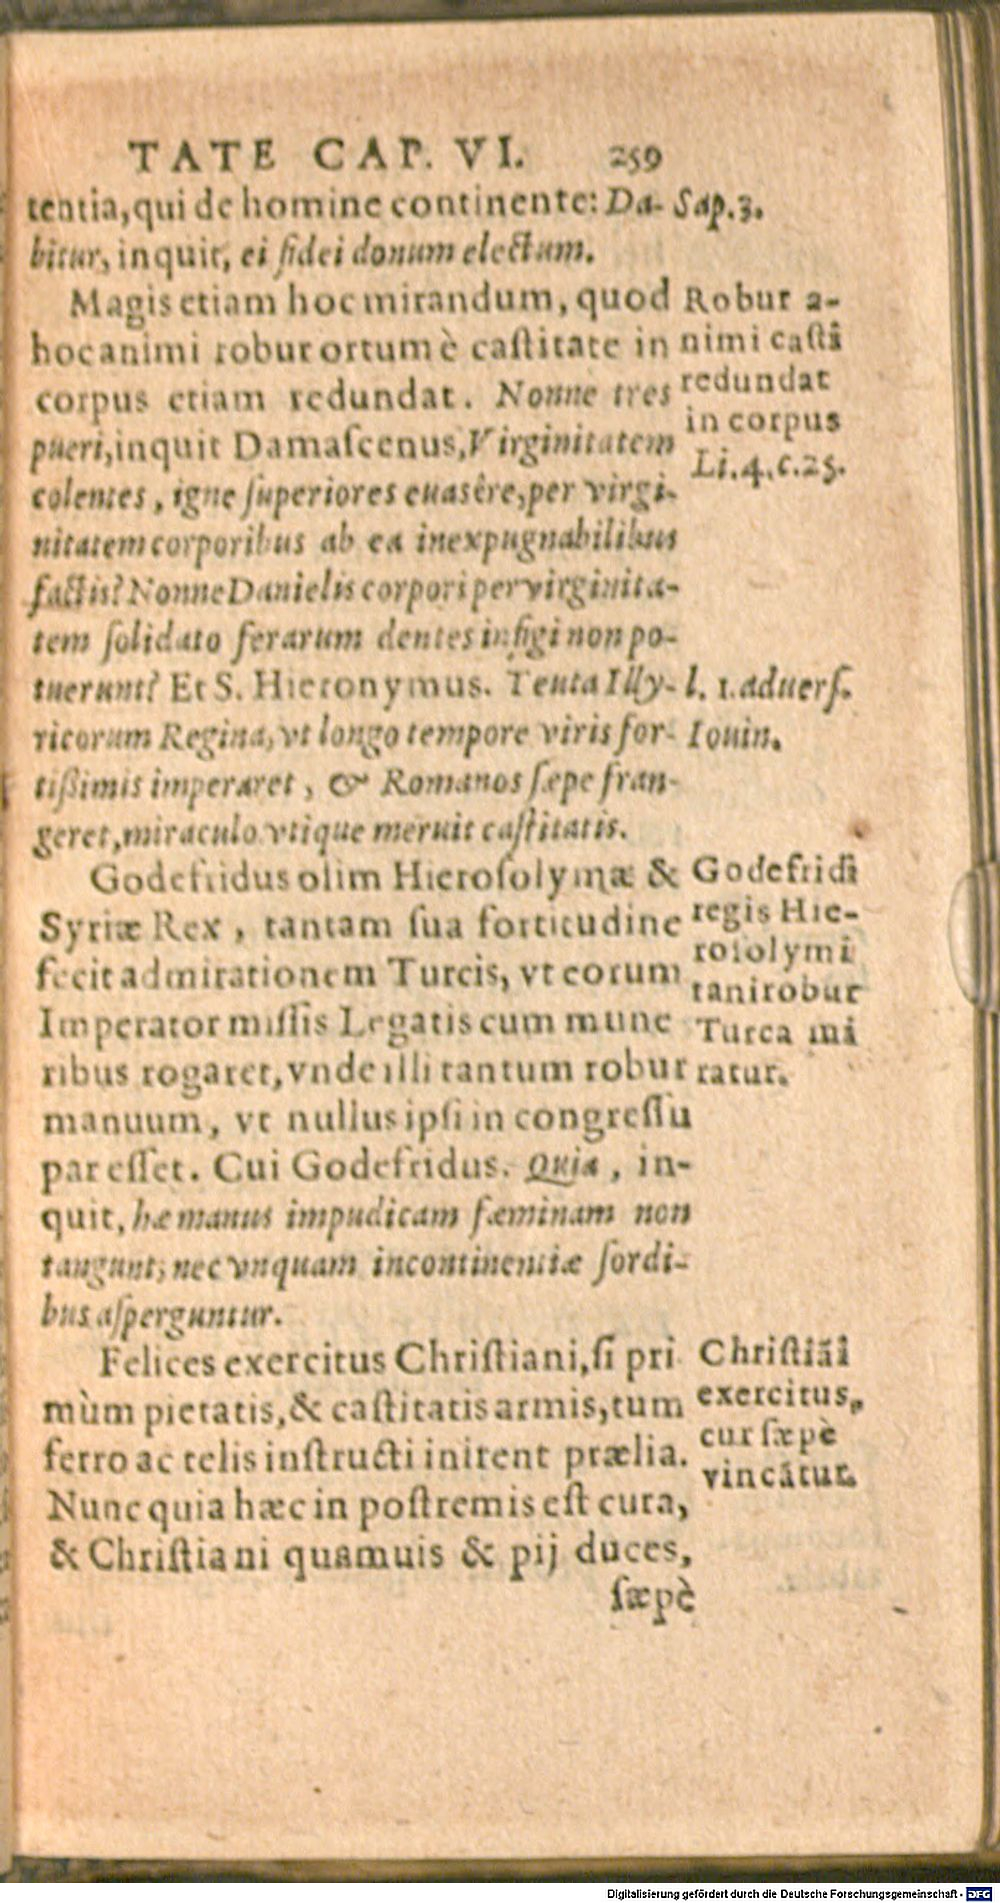 TATE CAP. VI. 259
tentia, qui de homine continente: Da-
bitur, inquit, ei fidei donum electum.
Sap. 3.
Magis etiam hoc mirandum, quod
hoc animi robur ortum è castitate in
corpus etiam redundat. Nonne tres
pueri, inquit Damascenus, Virginitatem
colentes, igne superiores euasêre, per virgi-
nitatem corporibus ab ea inexpugnabilibus
factis? Nonne Danielis corpori per virginita-
tem solidato ferarum dentes infigi non po-
tuerunt? Et S. Hieronymus. Teuta Illy-
ricorum Regina, vt longo tempore viris for-
tißimis imperaret, & Romanos sæpe fran-
geret, miraculo vtique meruit castitatis.
Robur a-
nimi castâ
redundat
in corpus
Li. 4. c. 25.
l. 1. aduers.
Iouin.
Godefridus olim Hierosolymæ &
Syriæ Rex, tantam sua fortitudine
fecit admirationem Turcis, vt eorum
Imperator missis Legatis cum mune
ribus rogaret, vnde illi tantum robur
manuum, vt nullus ipsi in congressu
par esset. Cui Godefridus. Quia, in-
quit, hæ manus impudicam fæminam non
tangunt, nec vnquam incontinentiæ sordi-
bus asperguntur.
Godefridi
regis Hie-
rosolymi
tani robur
Turca mi
ratur.
Felices exercitus Christiani, si pri
mùm pietatis, & castitatis armis, tum
ferro ac telis instructi inirent prælia.
Nunc quia hæc in postremis est cura,
& Christiani quamuis & pij duces,
sæpè
Christiãi
exercitus,
cur sæpè
vincãtur.
Digitalisierung gefördert durch die Deutsche Forschungsgemeinschaft - DFG